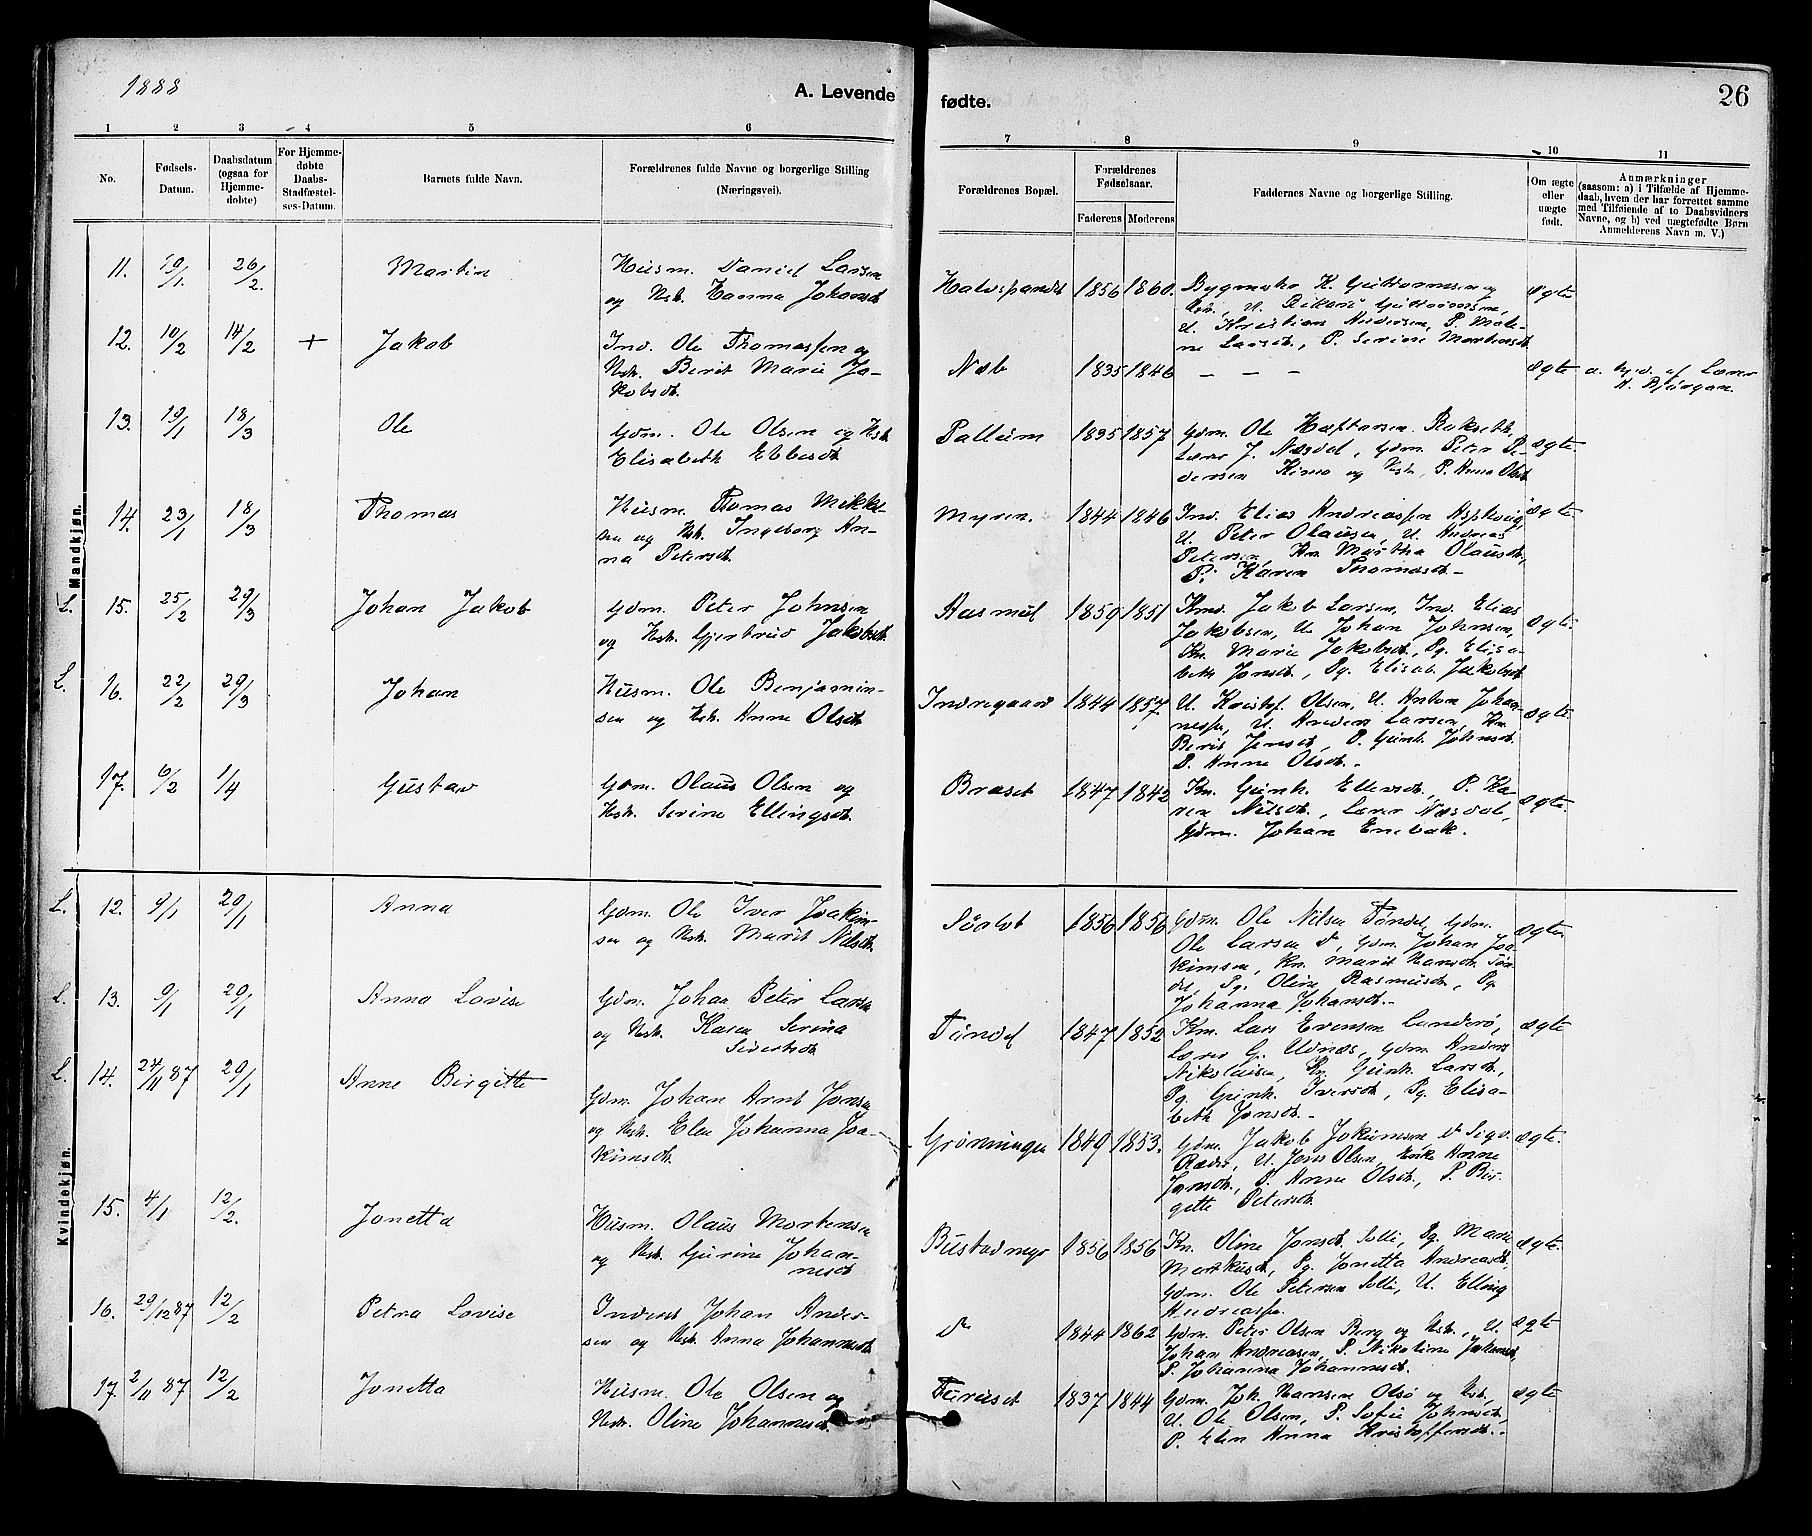 1888
A. Levende fødte.
26
1 2 3 4 5 6 7 8 9 10 11
No.
Fødsels-Datum.
Daabsdatum (ogsaa for Hjemmedøbte)
For Hjemmedøbte Daabs-Stadfæstelses-Datum.
Barnets fulde Navn.
Forældrenes fulde Navne og borgerlige Stilling (Næringsvei).
Forældrenes Bopæl.
Forældrenes Fødselsaar.
Faderens Moderens
Faddernes Navne og borgerlige Stilling.
Om ægte eller uægte født.
Anmærkninger (saasom: a) i Tilfælde af Hjemmedaab, hvem der har forrettet samme med Tilføiende af to Daabsvidners Navne, og b) ved uægtefødte Børn Anmelderens Navn m. V.)
Mandkjøn.
11. 19/1 26/2. Martin
Husm. Daniel Larsen
og Hst. Hanna Johansdt.
1856 1860.
U. Kristian Andersen, P.
Larsdt., P. Serine Martinsdt.
ægte
12. 10/2 14/2 + Jakob
Ind. Ole Thomassen og
Hst. Berit Marie Ja-
kobsdt.
Næb 1835 1846 — — — ægte
a. af Lærer
13. 19/1 18/3 Ole
Gdm. Ole Olsen og Hst.
Elisabeth Ebbesdt.
Pallum 1835 1857
Gdm. Ole Rokseth,
Lærer J. Næsdal, Gdm. Peter Pe-
dersen Kimo og Hst., P. Anna Olsdt.
ægte.
14. 23/1 18/3 Thomas
Husm. Thomas Mikkel-
sen og Hst. Ingeborg An-
na Petersdt.
Myren. 1844 1846
Ind. Elias Andreassen
U. Peter Olausen, U. Andreas
Petersen, Kn. Martha Olausdt.
P. Karen Thomasdt.
ægte.
L. 15. 25/2 29/3 Johan Jakob
Gdm. Peter Johnsen
og Hst. Gjertrud Jakobsdt.
Aasmul 1859 1851
Jakob Larsen, Ind. Elias
Jakobsen, U. Johan Johnsen,
Kn. Marie Jakobsdt., Pg. Elisa-
beth Jonsdt., Pg. Elisab. Jakobsdt.
ægte.
L. 16. 22/2 29/3 Johan
Husm. Ole Benjamin-
sen og Hst. Anne Olsdt.
Indregaard 1844 1857
U. Kristof. Olsen, U. Anton Johan-
nessen, U. Anders Larsen, Kn.
Berit Jensdt., P. Gunh. Johnsdt.
P. Anne Olsdt.
ægte.
17. 6/2 1/4 Gustav
Gdm. Olaus Olsen og
Hst. Serine Ellingsdt.
Bræset 1847 1842
Kn. Gunh. Ellevsdt., P. Ka-
ren Nilsdt., Lærer Næsdal,
Gdm. Johan Enebak.
ægte.
Kvindekjøn.
L. 12. 9/1 29/1 Anna
Gdm. Ole Iver Joakim-
sen og Hst. Marit Nilsdt.
1856 1856
Gdm. Ole Nilsen Tøndel, Gdm.
Ole Larsen do, Gdm. Johan Joa-
kimsen, Kn. Marit Hansdt. Tøn-
del, Pg. Oline Rasmusdt., Pg.
Johanna Johansdt.
ægte.
L. 13. 9/1 29/1 Anna Lovise
Gdm. Johan Peter Larsen
og Hst. Karen Serina
Sivertsdt.
Tøndel 1847 1852
Km. Lars Evensen Landerø,
Lærer G. Udnæs, Gdm. Anders
Nikolaisen, Kn. Gunh. Larsdt.,
Pg. Gunh. Iversdt., Pg. Elisa-
beth Jonsdt.
ægte
L. 14. 27/11 87 29/1 Anne Birgitte
Gdm. Johan Arnt Jonsen
og Hst. Elen Johanna Joa-
kimsdt.
Grønningen 1849 1853.
Gdm. Jakob Jokumsen, do Sigv.
U. Jens Olsen, Enke Anne
Jonsdt., P. Anne Olsdt., P. Bir-
gitte Petersdt.
ægte.
15. 4/1 12/2. Jonetta
Husm. Olaus Mortensen
og Hst. Gurine Johan-
nesdt.
1856 1856
Kn. Oline Jonsdt. Solli, Pg. Maren
Markusdt., Pg. Jonetta Andreasdt.
Gdm. Ole Petersen Solli, U. Elling
Andreassen.
ægte.
16. 29/12 87 12/2 Petra Lovise
Inderst Johan Ander-
sen og Hst. Anna Johannesdt.
do 1844 1862
Gdm. Peter Olsen Berg og Hst., U.
Johan Andreasen, P. Nikoline Johansdt.,
P. Johanna Johannesdt.
ægte
17. 2/11 87 12/2 Jonetta
Husm. Ole Olsen og
Hst. Oline Johannesdt.
Furuset 1837 1844
Gdm. Joh. Hansen Olsø og Hst.,
U. Ole Olsen, P. Sofie Johnsdt.,
P. Elen Anna Kristoffersdt.
ægte.